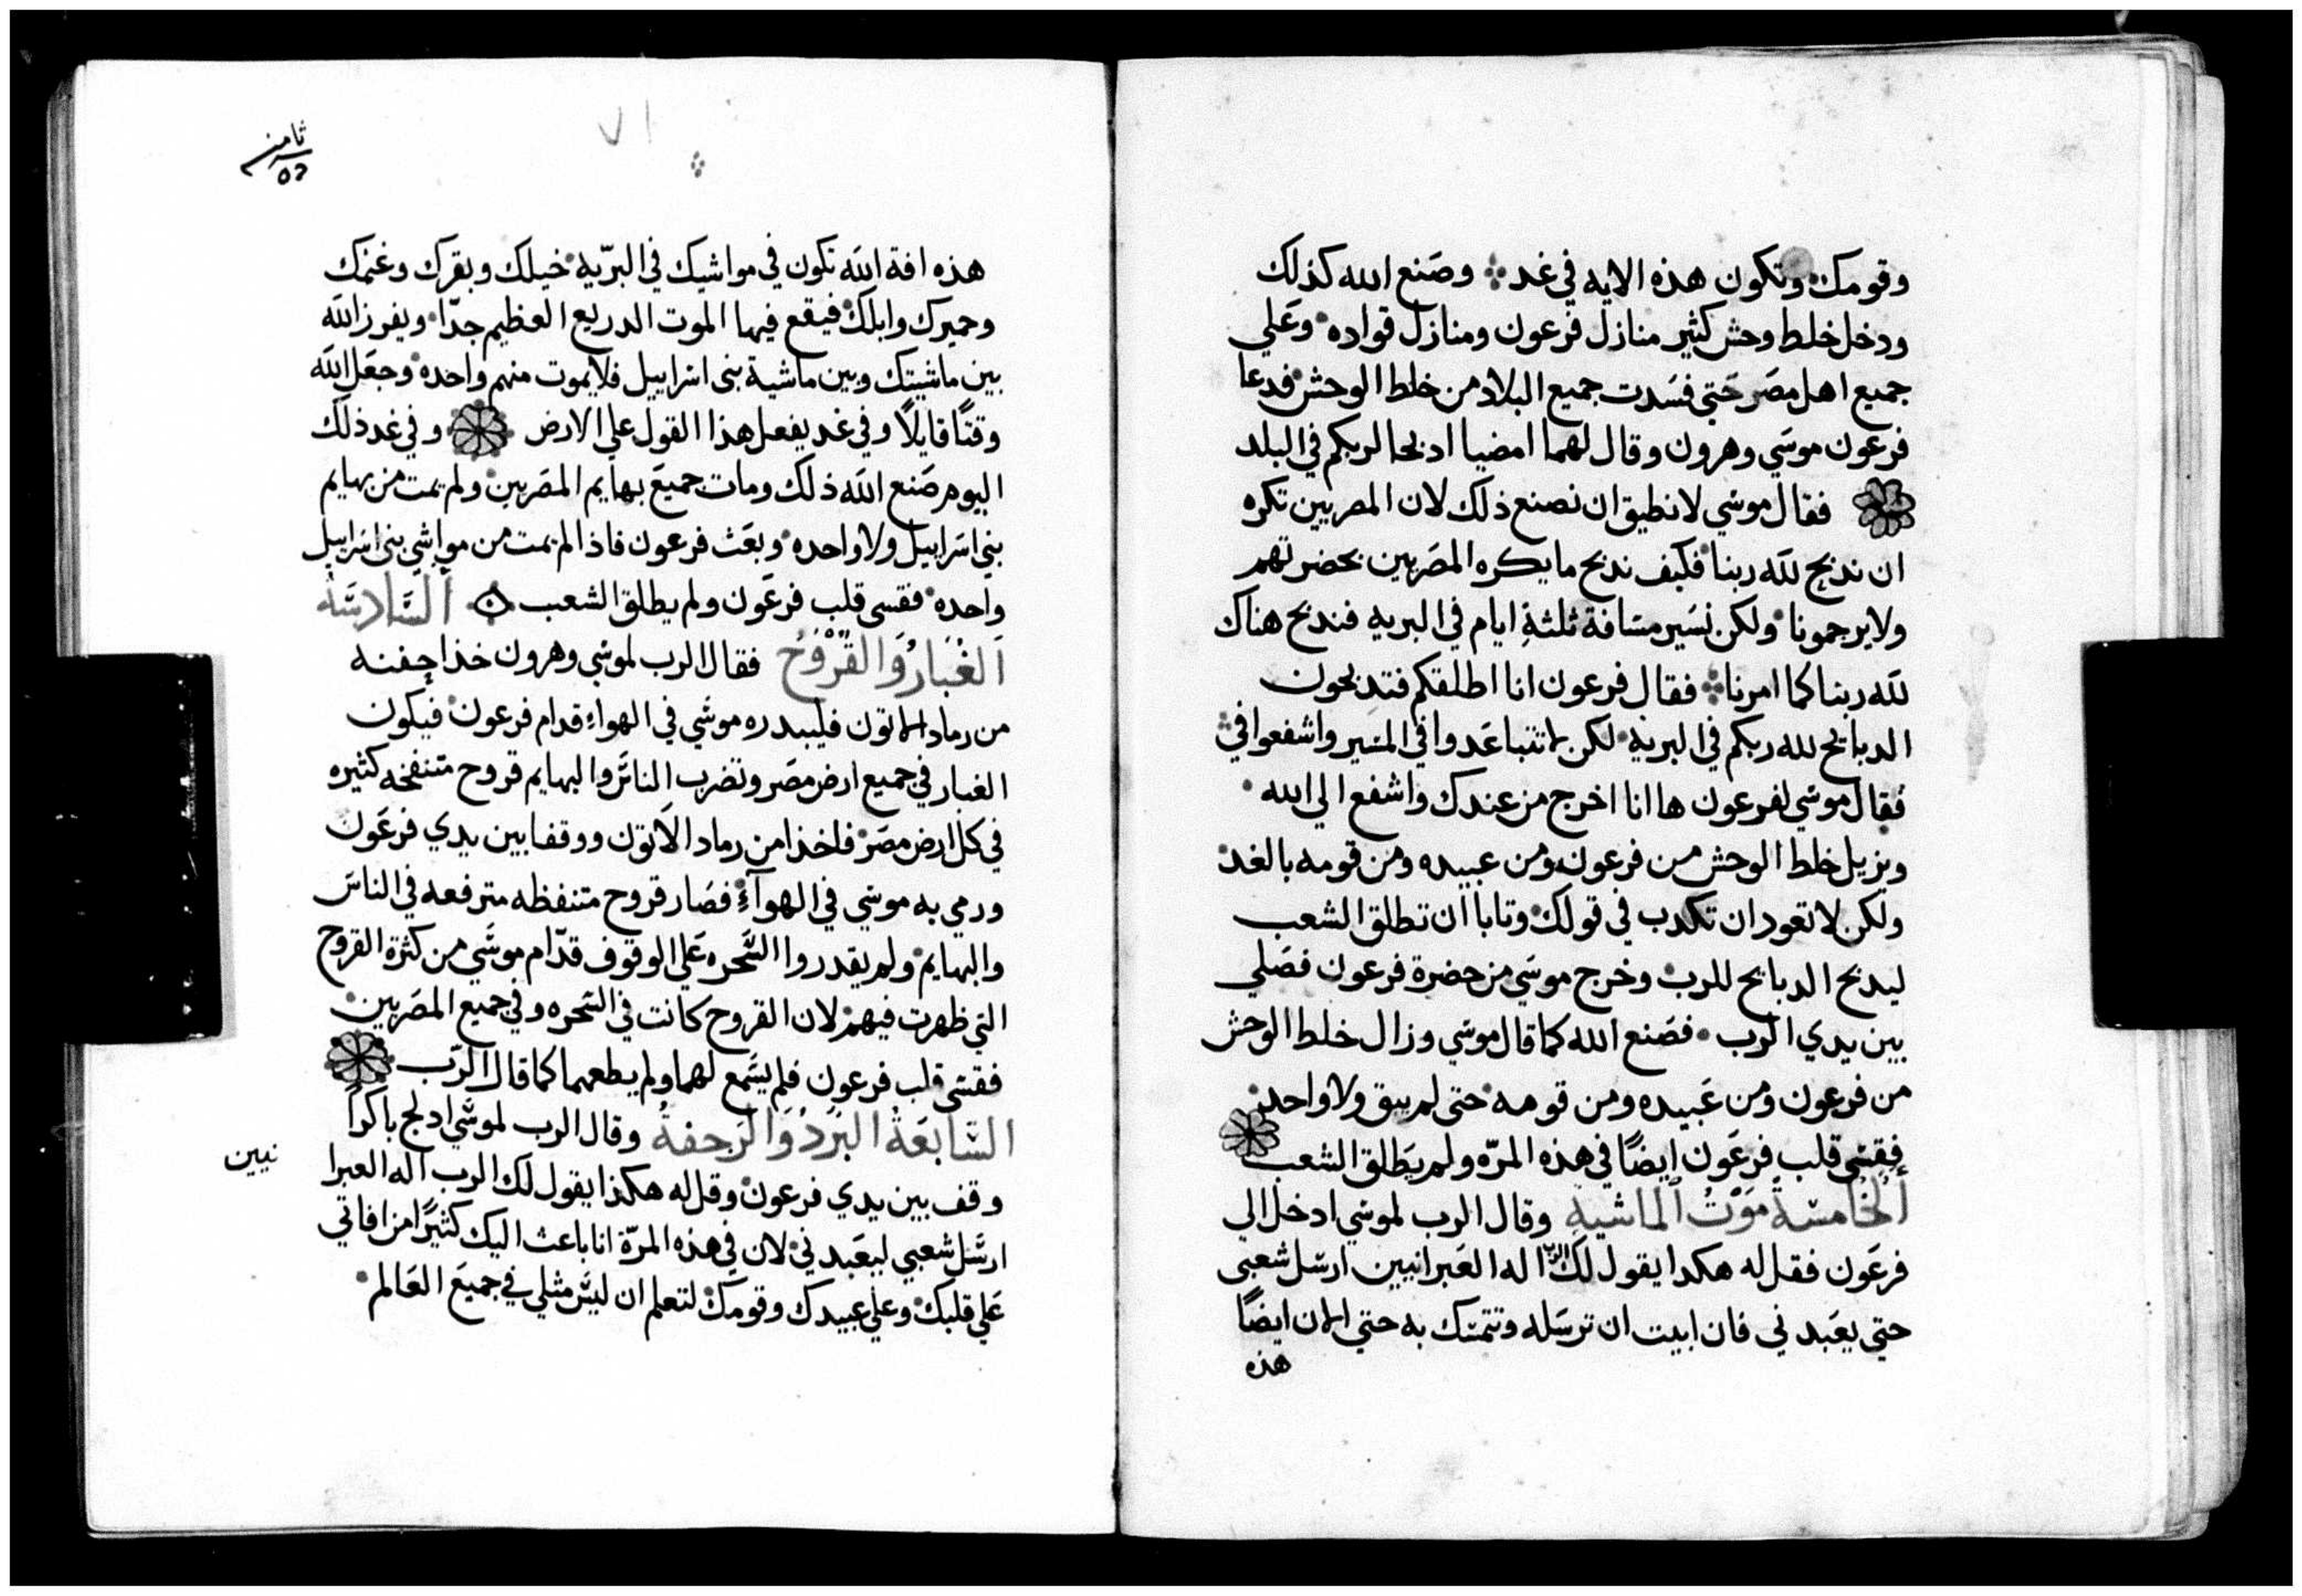 وقومك وتكون هذه الايه في غد وصنع الله كذلك
ودخل خلط وحش كثير منازل فرعون ومنازل قواده وعلي
جميع اهل مصر حتي فسدت جميع البلاد من خلط الوحش فدعا
فرعون موسي وهرون وقال لهما امضيا ادبحا لربكم في البلد
فقال موسي لا نطيق ان نصنع ذلك لان المصريين تكره
ان ندبح لله ربنا فكيف ندبح ما يكره المصريين بحضرتهم
ولا يرجمونا ولكن نسير مسافة ثلثة ايام في البريه فندبح هناك
لله ربنا كما امرنا فقال فرعون انا اطلقكم فتدبحون
الدبايح لله ربكم في البريه لكن لا تتباعدوا في المسير واشفعوا في
فقال موسي لفرعون ها انا اخرج من عندك واشفع الي الله
ويزيل خلط الوحش من فرعون ومن عبيده ومن قومه بالغد
ولكن لا تعود ان تكدب في قولك وتابا ان تطلق الشعب
ليدبح الدبايح للرب وخرج موسي من حضرة فرعون فصلي
بين يدي الرب فصنع الله كما قال موسي وزال خلط الوحش
من فرعون ومن عبيده ومن قومه حتي لم يبق ولا واحد
فقسي قلب فرعون ايضًا في هذه المرّه ولم يطلق الشعب
الخامسة موت الماشيه وقال الرب لموسي ادخل الي
فرعون فقل له هكدا يقول لك الرب اله العبرانيين ارسل شعبي
حتي يعبدني فان ابيت ان ترسله وتتمسك به حتي الان ايضًا
هذه
ثامن
٧١
هذه افة الله تكون في مواشيك في البرّيه خيلك وبقرك وغنمك
وحميرك وابلك فيقع فيها الموت الدريع العظيم جدّا ويفرز الله
بين ماشيتك وبين ماشية بني اسراييل فلا يموت منهم واحده وجعل الله
وقتًا قايلًا وفي غد يفعل هذا القول علي الارض وفي غد ذلك
اليوم صنع الله ذلك ومات جميع بهايم المصريين ولم يمت من بهايم
بني اسراييل ولا واحده وبعث فرعون فاذا لم يمت من مواشي بني اسراييل
واحده فقسى قلب فرعون ولم يطلق الشعب السادسة
الغبار والقروح فقال الرب لموسي وهرون خذا حفنه
من رماد الاتون فليبدره موسي في الهواء قدام فرعون فيكون
الغبار في جميع ارض مصر وتضرب الناس والبهايم قروح متنفخه كثيره
في كل ارض مصر فاخذا من رماد الاتون ووقفا بين يدي فرعون
ورمي به موسي في الهوآء فصار قروح متنفظه مترفعه في الناس
والبهايم ولم يقدروا السحره علي الوقوف قدّام موسي من كثرة القروح
التي ظهرت فيهم لان القروح كانت في السحره وفي جميع المصريين
فقسي قلب فرعون فلم يسمع لهما ولم يطعهما كما قال الرّب
السابعة البرد والرجفة وقال الرب لموسي ادلج باكرًا
وقف بين يدي فرعون وقل له هكذا يقول لك الرب اله العبرا
نيين
ارسل شعبي ليعبدني لان في هذه المرّة انا باعث اليك كثيرًا من افاتي
علي قلبك وعلي عبيدك وقومك لتعلم ان ليس مثلي في جميع العالم